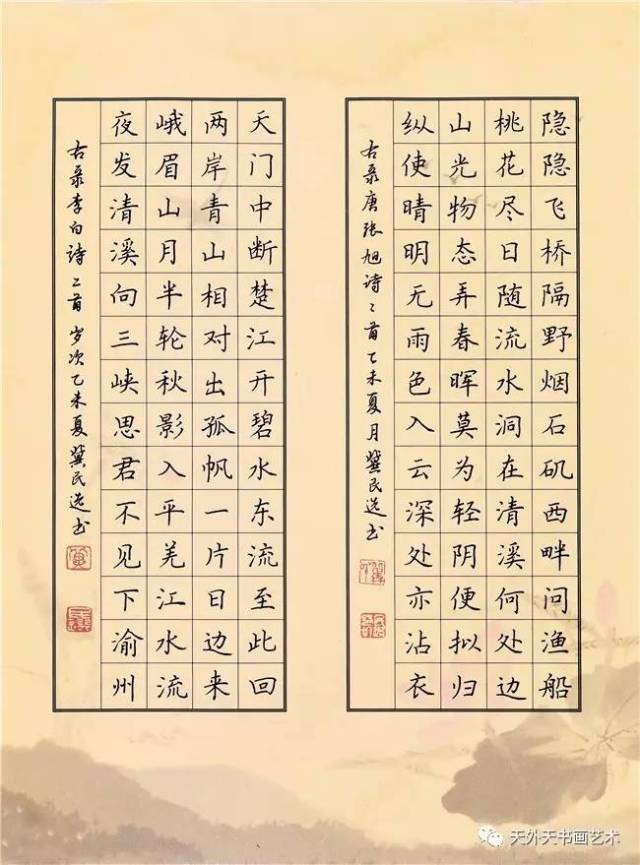 隐隐飞桥隔野烟石矶西畔问渔船
桃花尽日随流水洞在清溪何处边
山光物态弄春晖莫为轻阴便拟归
纵使晴明无雨色入云深处亦沾衣
右录唐张旭诗二首乙未夏月民选书
天门中断楚江开碧水东流至此回
两岸青山相对出孤帆一片日边来
峨眉山月半轮秋影入平羌江水流
夜发清溪向三峡思君不见下渝州
右录李白诗二首 岁次乙未夏民选书
天外天书画艺术